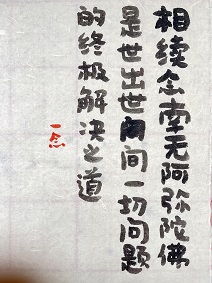 相续念南无阿弥陀佛
是世出世间间一切问题
的终极解决之道
一念